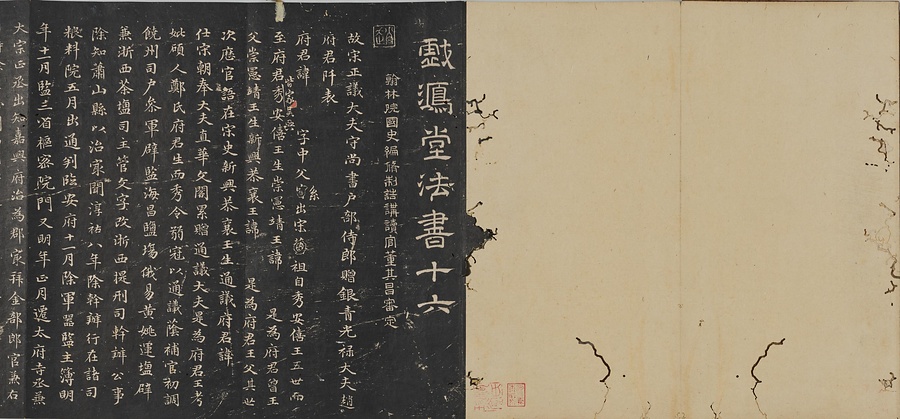 戲鴻堂法書十六
翰林院國史編修制誥講讀官董其昌審定
故宗正議大夫守尚書戶部侍郎贈銀青光祿大夫趙
府君阡表
府君諱 字中父 系出宗 祖自秀安僖王五世而
至府君秀安僖王生崇憲靖王諱 是為府君曾王
皆家吳興
父崇憲靖王生新興恭襄王諱 是為府君王父其世
次應官語在宗史新興恭襄王生通議府君諱
仕宗朝奉大夫直華文閣累贈通議大夫是為府君王考
妣碩人鄭氏府君生而秀令弱冠以通議蔭補官初調
饒州司戶參軍辟監海昌鹽場俄易黃姚運鹽辟
兼浙西茶鹽司主管文字改浙西提刑司幹辦公事
除知蕭山縣以治家聞淳祐八年除幹辦行在諸司
粮料院五月出通判臨安府十一月除軍器監主簿明
年十一月監三省樞密院門又明年正月遷太府寺丞兼
大宗正丞出知嘉興府治為郡家拜金部郎官兼右